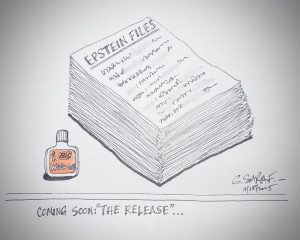 EPSTEIN FILES
BIC
COMING SOON: "THE RELEASE"...